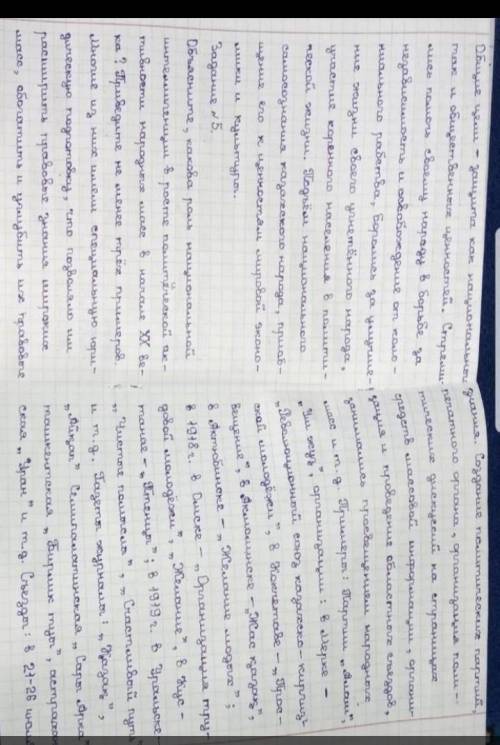 Общие цели – защита как национальной
так и общественных ценностей. Стреми-
лись помочь своему народу в борьбе за
независимость и освобождение от коло-
ниального рабства, боролись за улучше-
ние жизни своего угнетённого народа,
участие коренного населения в полити-
ческой жизни. Подъём национального
самосознания казахского народа, приоб-
щение его к ценностям мировой эконо-
мики и культуры.
Задание №5.
Объясните, какова роль национальной
интеллигенции в росте политической ак-
тивности народных масс в начале XX ве-
ка? Приведите не менее трёх примеров.
Многие из них имели специальную юри-
дическую подготовку, что позволяло им
расширить правовые знания широких
масс, обогатить и углубить их правовые
знания. Создание политических партий,
печатного органа, организация поли-
тических дискуссий на страницах
средств массовой информации, органи-
зация и проведение областного съездов,
занимались просвещением народных
масс и т.д. Примеры: Партии „Алаш",
„Уш жуз", организации: в Мерке –
„Революционный союз казахско-киргиз-
ской молодёжи", в Кокчетаве – „Прос-
вещение", в Акмолинске – „Жас қазақ",
в Актюбинске – „Желание молодых";
в 1918 г. в Омске – „Организация тру-
довой молодёжи", „Желание", в Кус-
танае – „Птенцы"; в 1919 г. в Уральске –
„Чистые помыслы", „Счастливый путь"
и т.д. Газеты журналы: „Қазақ",
„Айқап", Семипалатинская „Сары Арка"
ташкентская „Бирлик туы", астрахан-
ская „Уран" и т.д. Съезды: в 21-26 июля